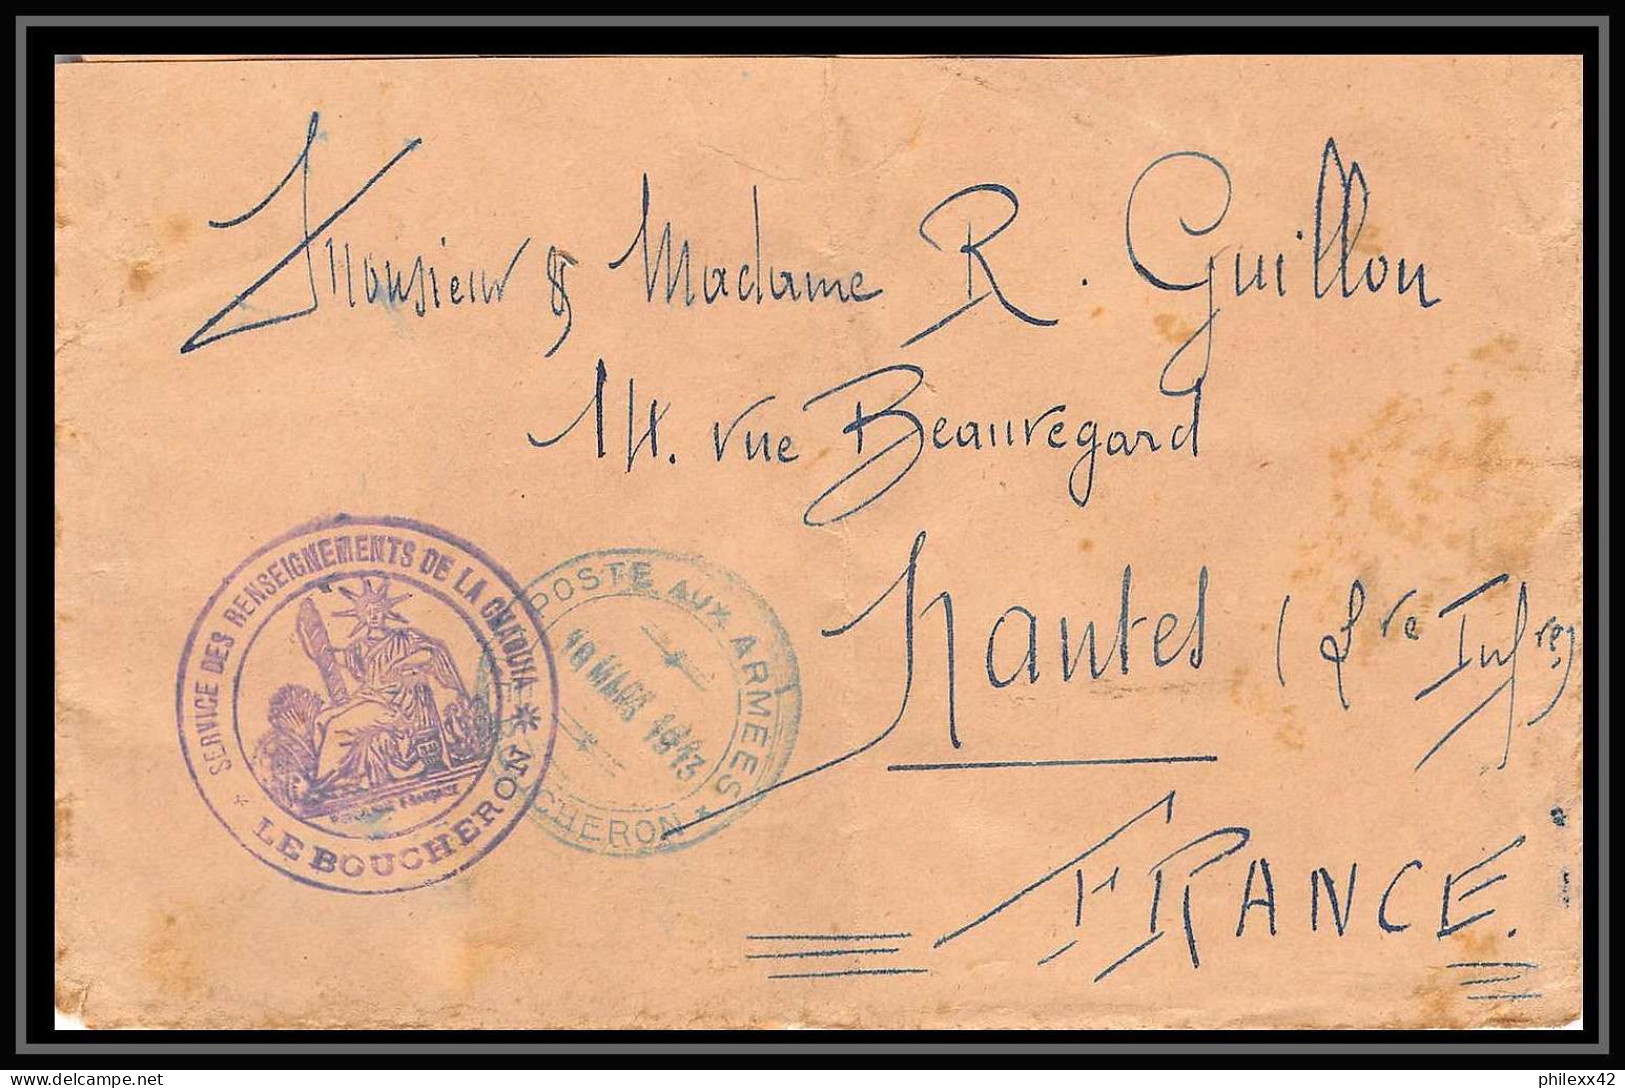 Monsieur & Madame R. Guillon
14. rue Beauregard
Nantes (Lre Infre)
FRANCE.
SERVICE DES RENSEIGNEMENTS DE LA CHAOUIA
LE BOUCHERON
FRANÇAISE
POSTE AUX ARMÉES
MARS 1913
CHERON
philexx42